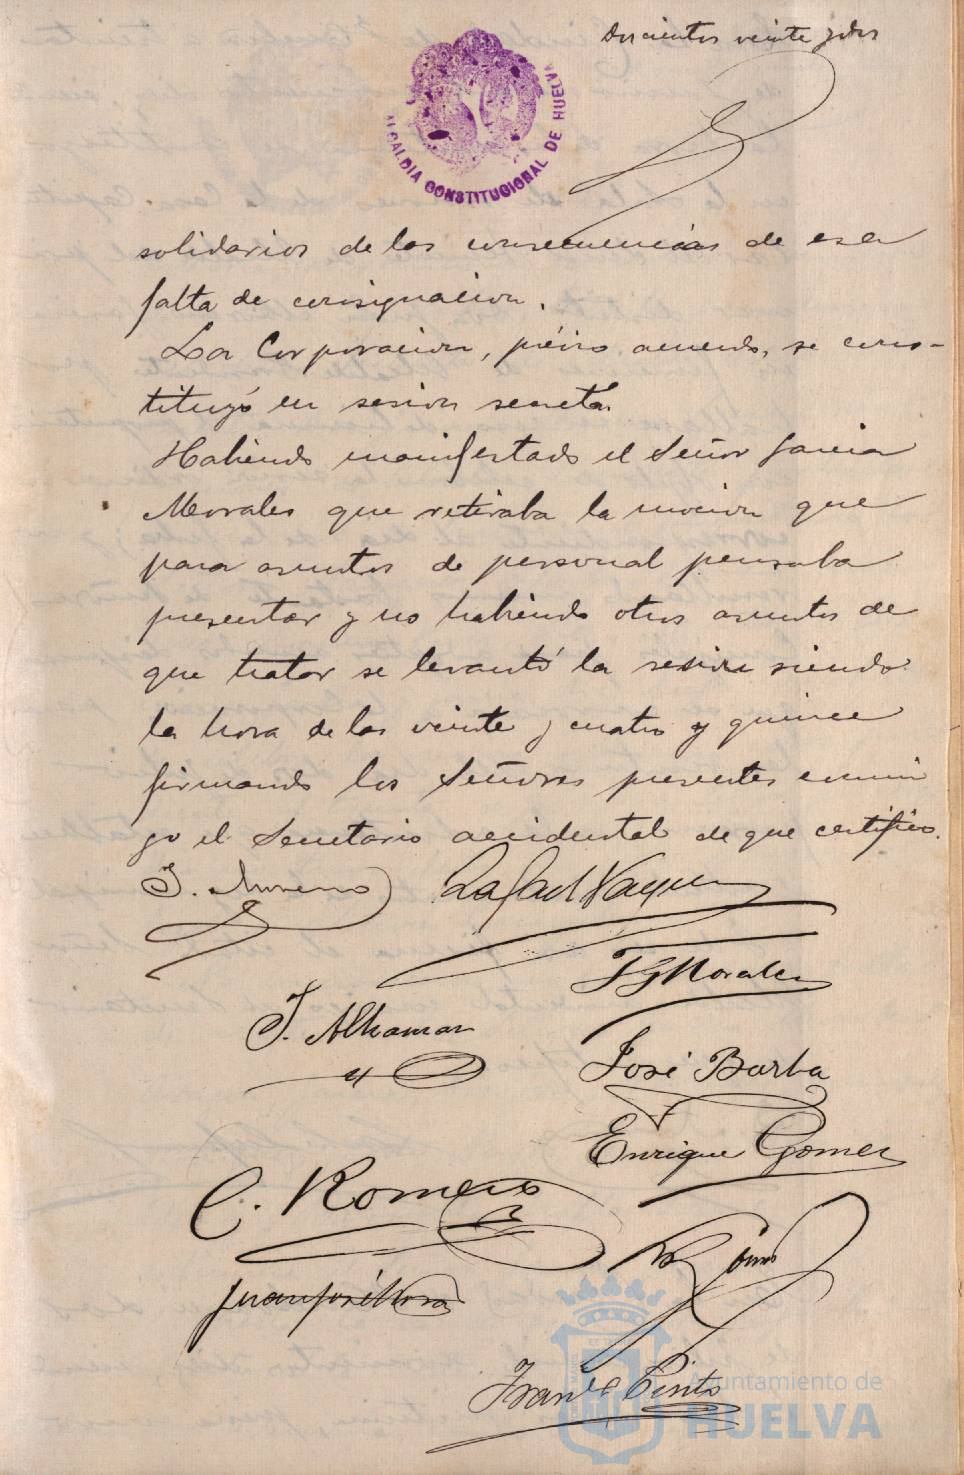 Doscientos veinte y dos
ALCALDIA CONSTITUCIONAL DE HUELVA
solidarios de las consecuencias de esa
falta de consignacion.
La Corporacion, prévio acuerdo, se cons-
tituyó en sesion secreta.
Habiendo manifestado el Señor Garcia
Morales que retiraba la mocion que
para asuntos de personal pensaba
presentar y no habiendo otros asuntos de
que tratar se levantó la sesion siendo
la hora de las veinte y cuatro y quince
firmando los Señores presentes conmi
go el Secretario accidental de que certifico.
J. Moreno Rafael Vazquez
F G Morales
J. Alhamar
José Barba
Enrique Gomez
C. Romero
Juan José Mora
Pinto
Ayuntamiento de
HUELVA